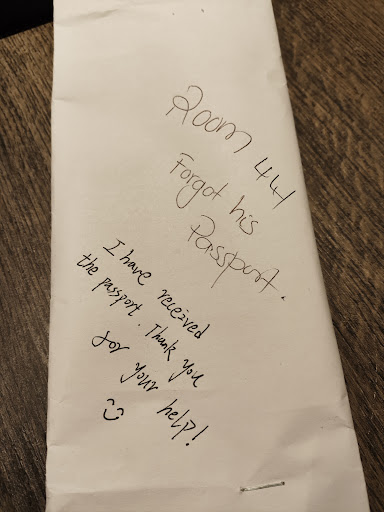 Room 441
Forgot his
Passport.
I have received
the passport. Thank you
for your help!